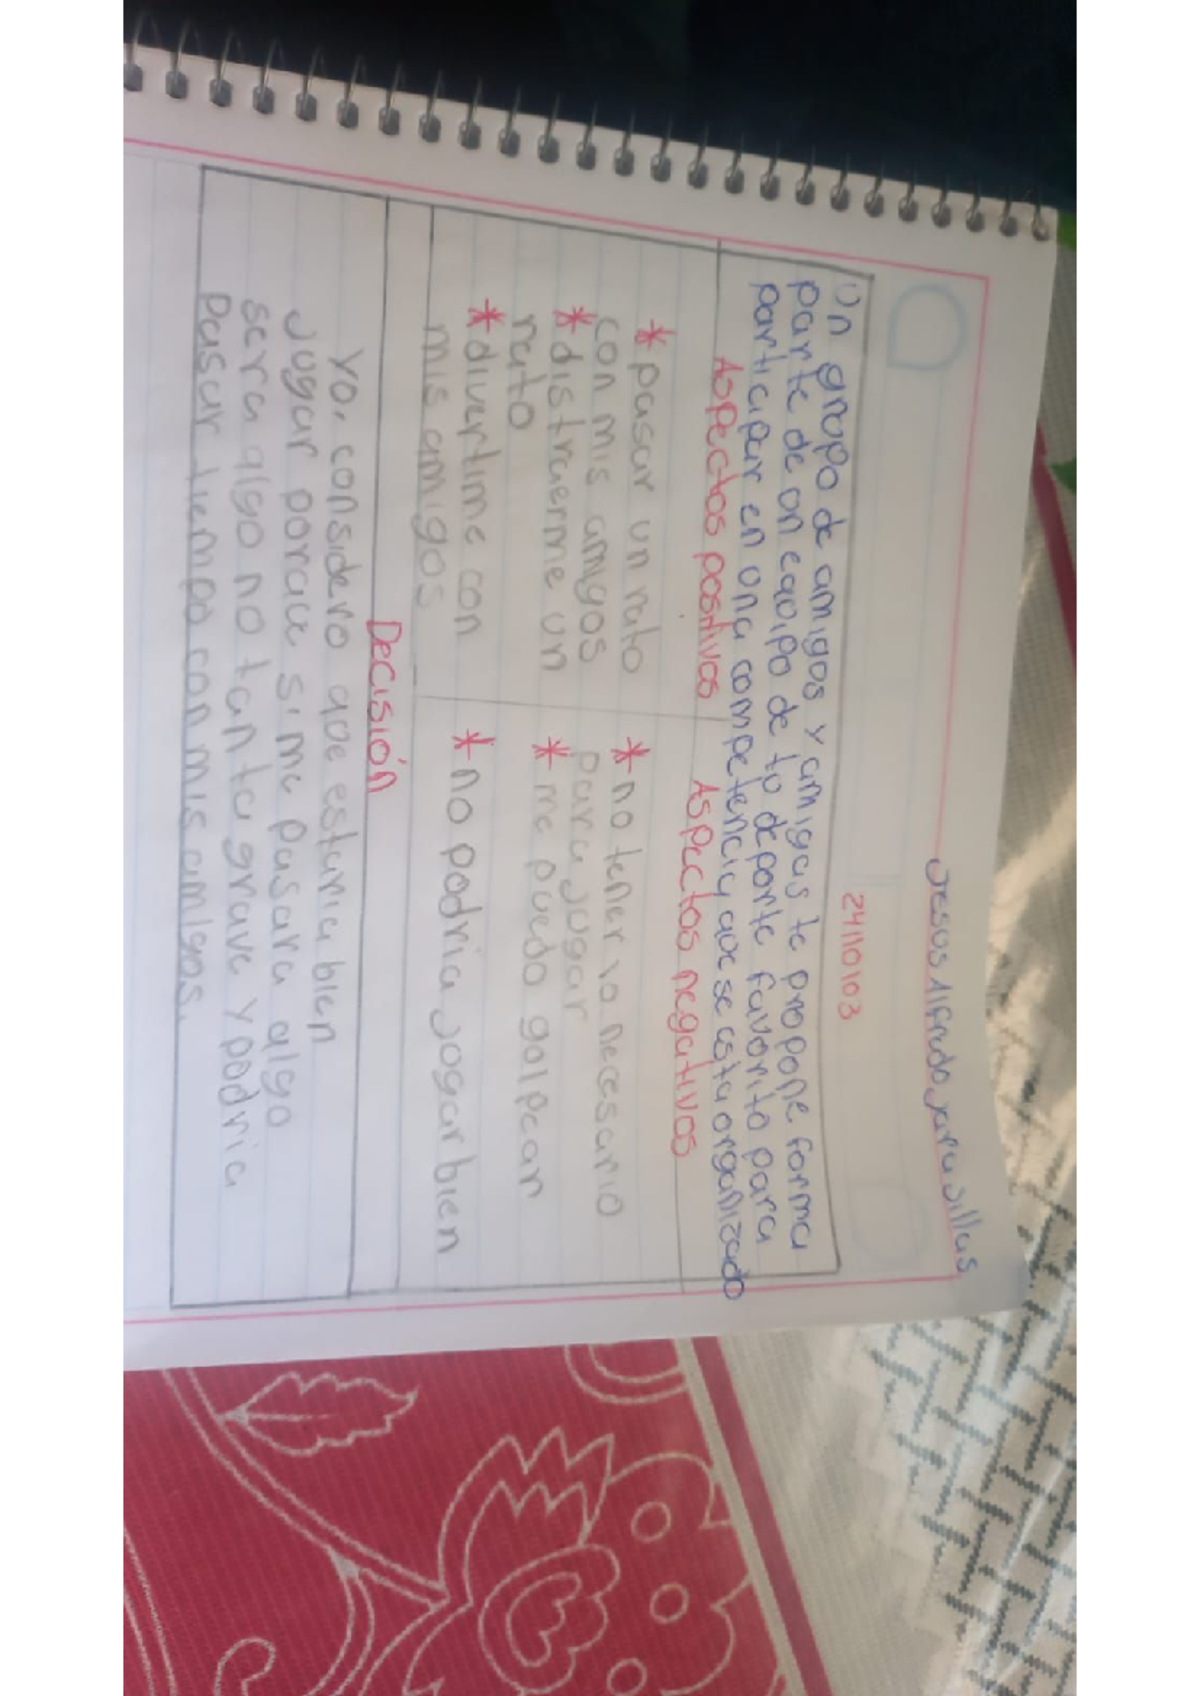 Jesus Alfredo Jara Sillas
24110103
Un grupo de amigos y amigas te propone forma
parte de un equipo de tu deporte favorito para
participar en una competencia que se esta organizado
Aspectos positivos
* pasar un rato
con mis amigos
* distraerme un
rato
* divertime con
mis amigos
Aspectos negativos
* no tener lo necesario
para jugar
* me puedo golpear
* no podria jugar bien
Decisión
Yo, considero que estaria bien
jugar porque si me pasara algo
sera algo no tanta grave y podria
pasar tiempo con mis amigos.